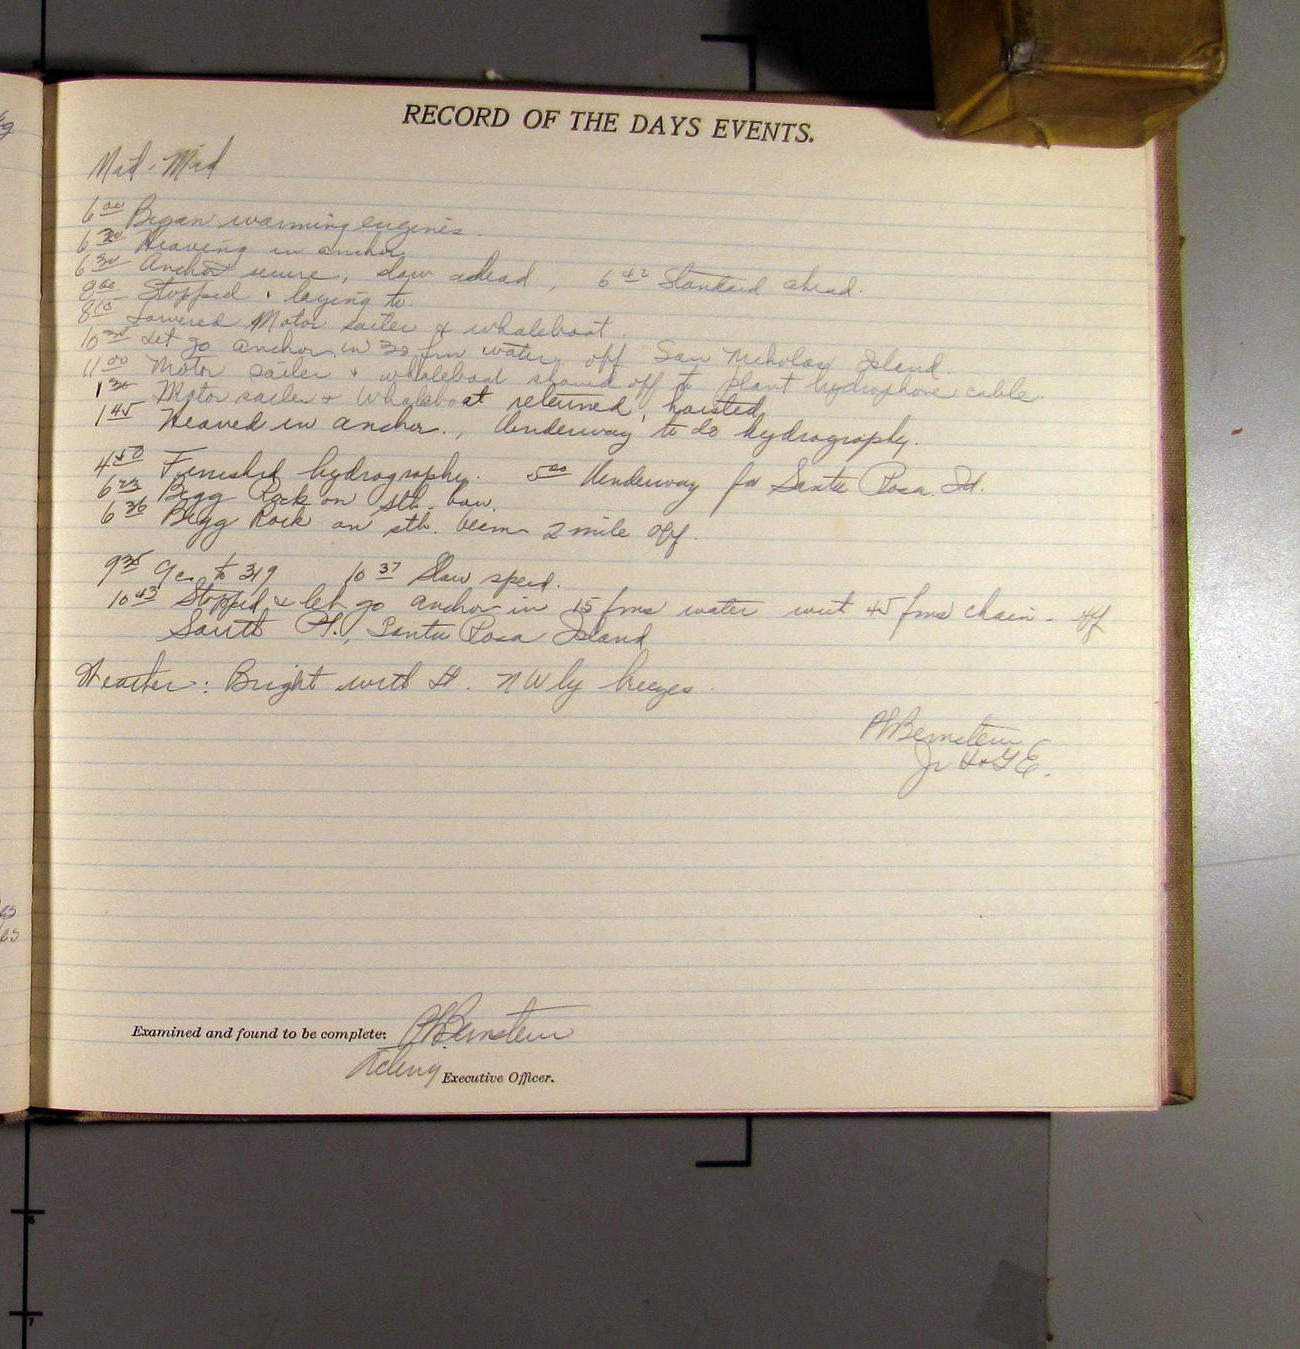 RECORD OF THE DAYS EVENTS.
Mid - Mid
6 00 Began warming engines.
6 20 Heaving in anchor
6 30 Anchor secure, slow ahead, 6 42 Standard ahead.
8 00 Stopped & laying to.
8 10 Lowered Motor sailer & whaleboat
10 30 Let go anchor in 32 fm water off San Nicholas Island.
11 00 Motor sailer & whaleboat shoved off to plant hydrophone cable.
1 30 Motor sailer & Whaleboat returned, hoisted
1 45 Heaved in anchor., Underway to do hydrography.
4 50 Finished hydrography. 5 00 Underway for Santa Rosa Id.
6 23 Begg Rock on stb. bow.
6 36 Begg Rock on stb. beam 2 mile off.
9 35 gc. to 319 10 37 Slow speed.
10 43 Stopped & let go anchor in 15 fms water with 45 fms chain - off
South Pt., Santa Rosa Island
Weather: Bright with lt. NWly breezes.
Bernstein
Jr H & G E.
Examined and found to be complete: Bernstein
Acting Executive Officer.